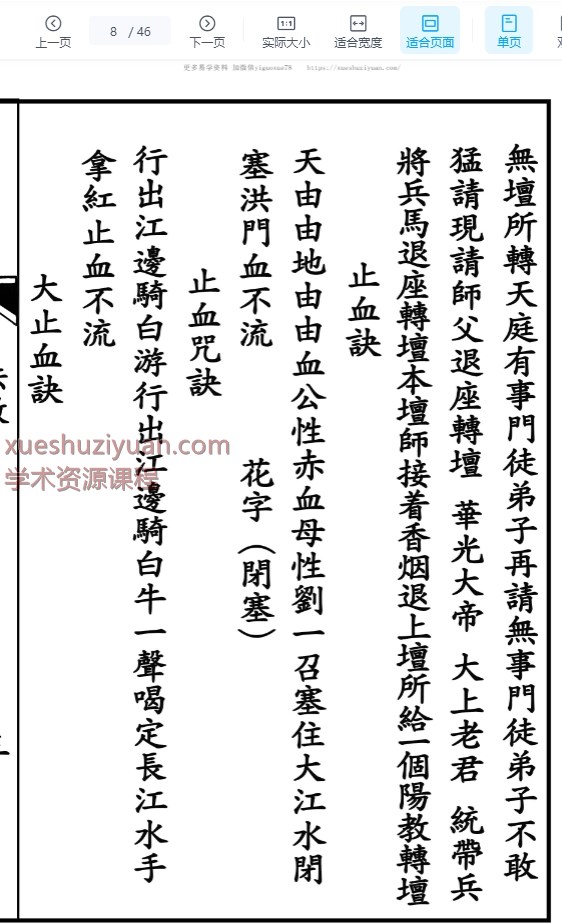 上一页
8 / 46
下一页
1:1
实际大小
适合宽度
适合页面
单页
更多易学资料 加微信yiguoxue79 https://xueshuziyuan.com/
無壇所轉天庭有事門徒弟子再請無事門徒弟子不敢
猛請現請師父退座轉壇 華光大帝 大上老君 統帶兵
將兵馬退座轉壇本壇師接着香烟退上壇所給一個陽教轉壇
止血訣
天由由地由由血公性赤血母性劉一召塞住大江水閉
塞洪門血不流 花字（閉塞）
止血咒訣
行出江邊騎白游行出江邊騎白牛一聲喝定長江水手
拿紅止血不流
大止血訣
xueshuziyuan.com
学术资源课程